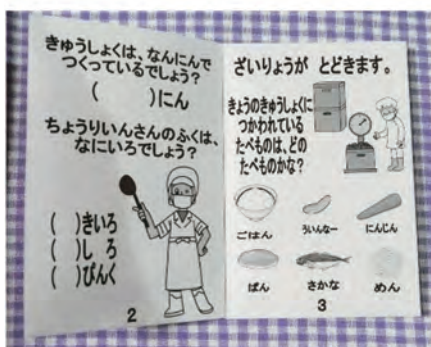 きゅうしょくは、なんにんで
つくっているでしょう?
(　　　)にん
ちょうりいんさんのふくは、
なにいろでしょう?
(　)きいろ
(　)し　ろ
(　)ぴんく
2
ざいりょうが　とどきます。
きょうのきゅうしょくに
つかわれている
たべものは、どの
たべものかな?
ごはん　ういんなー　にんじん
ぱん　さかな　めん
3